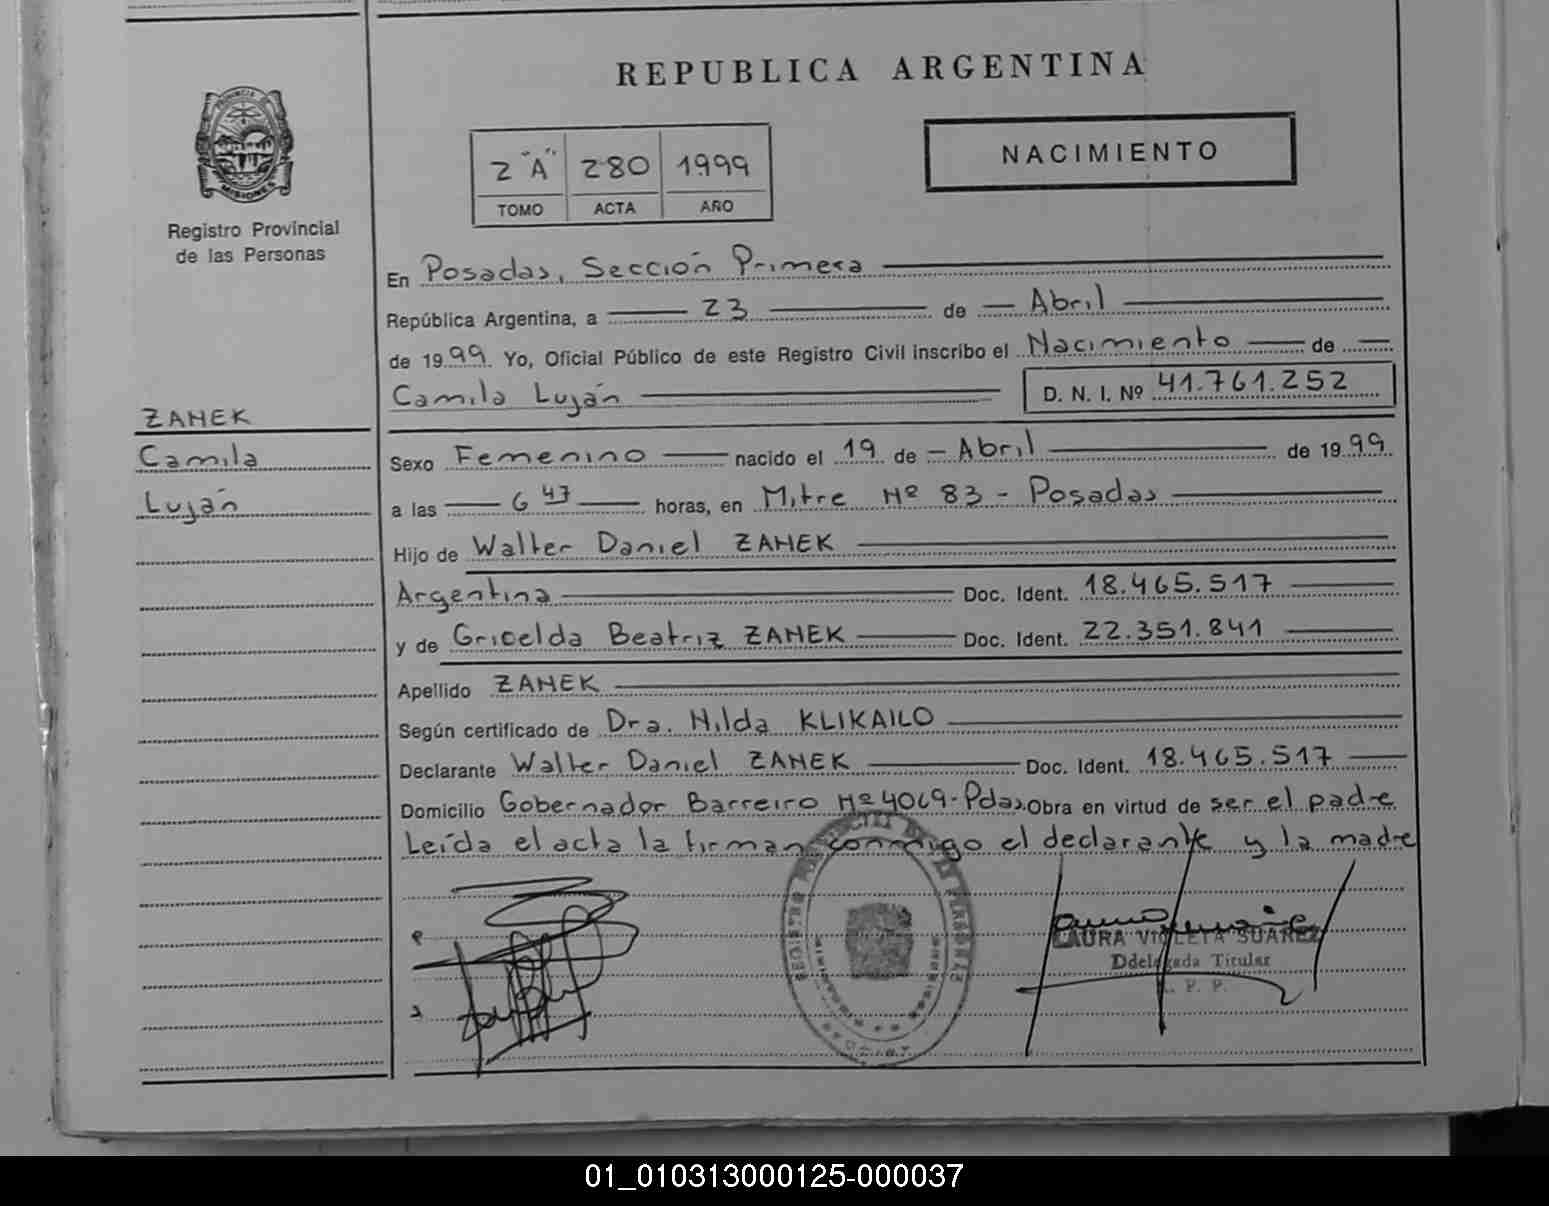 REPUBLICA ARGENTINA
PROVINCIA DE
MISIONES
Registro Provincial
de las Personas
2 "A" 280 1999
TOMO ACTA AÑO
NACIMIENTO
En Posadas, Sección Primera
República Argentina, a 23 de Abril
de 1999 Yo, Oficial Público de este Registro Civil inscribo el Nacimiento de
Camila Luján D. N. I. Nº 41.761.252
ZANEK
Camila
Luján
Sexo Femenino nacido el 19 de Abril de 1999
a las 6 47 horas, en Mitre Nº 83 - Posadas
Hijo de Walter Daniel ZANEK
Argentina Doc. Ident. 18.465.517
y de Gricelda Beatriz ZANEK Doc. Ident. 22.351.841
Apellido ZANEK
Según certificado de Dra. Nilda KLIKAILO
Declarante Walter Daniel ZANEK Doc. Ident. 18.465.517
Domicilio Gobernador Barreiro Nº 4069-Pdas. Obra en virtud de ser el padre
Leída el acta la firman conmigo el declarante y la madre
LAURA VIOLETA SUAREZ
Ddelegada Titular
R. P. P.
01_010313000125-000037